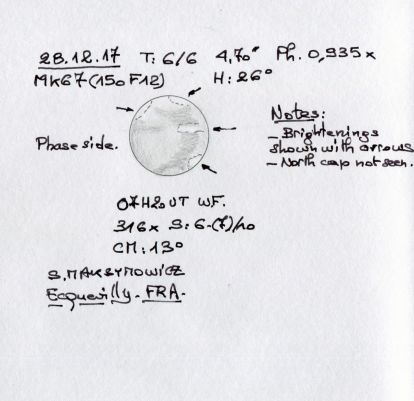 28.12.17 T: 6/6 4,70" Ph. 0,935 x
MK67 (150 F12) H: 26°
Notes:
- Brightenings
shown with arrows
- North cap not seen.
Phase side.
07H20 UT WF.
316x S: 6-(7)/10
CM: 13°
S. MAKSYMOWICZ
Ecquevilly - FRA -